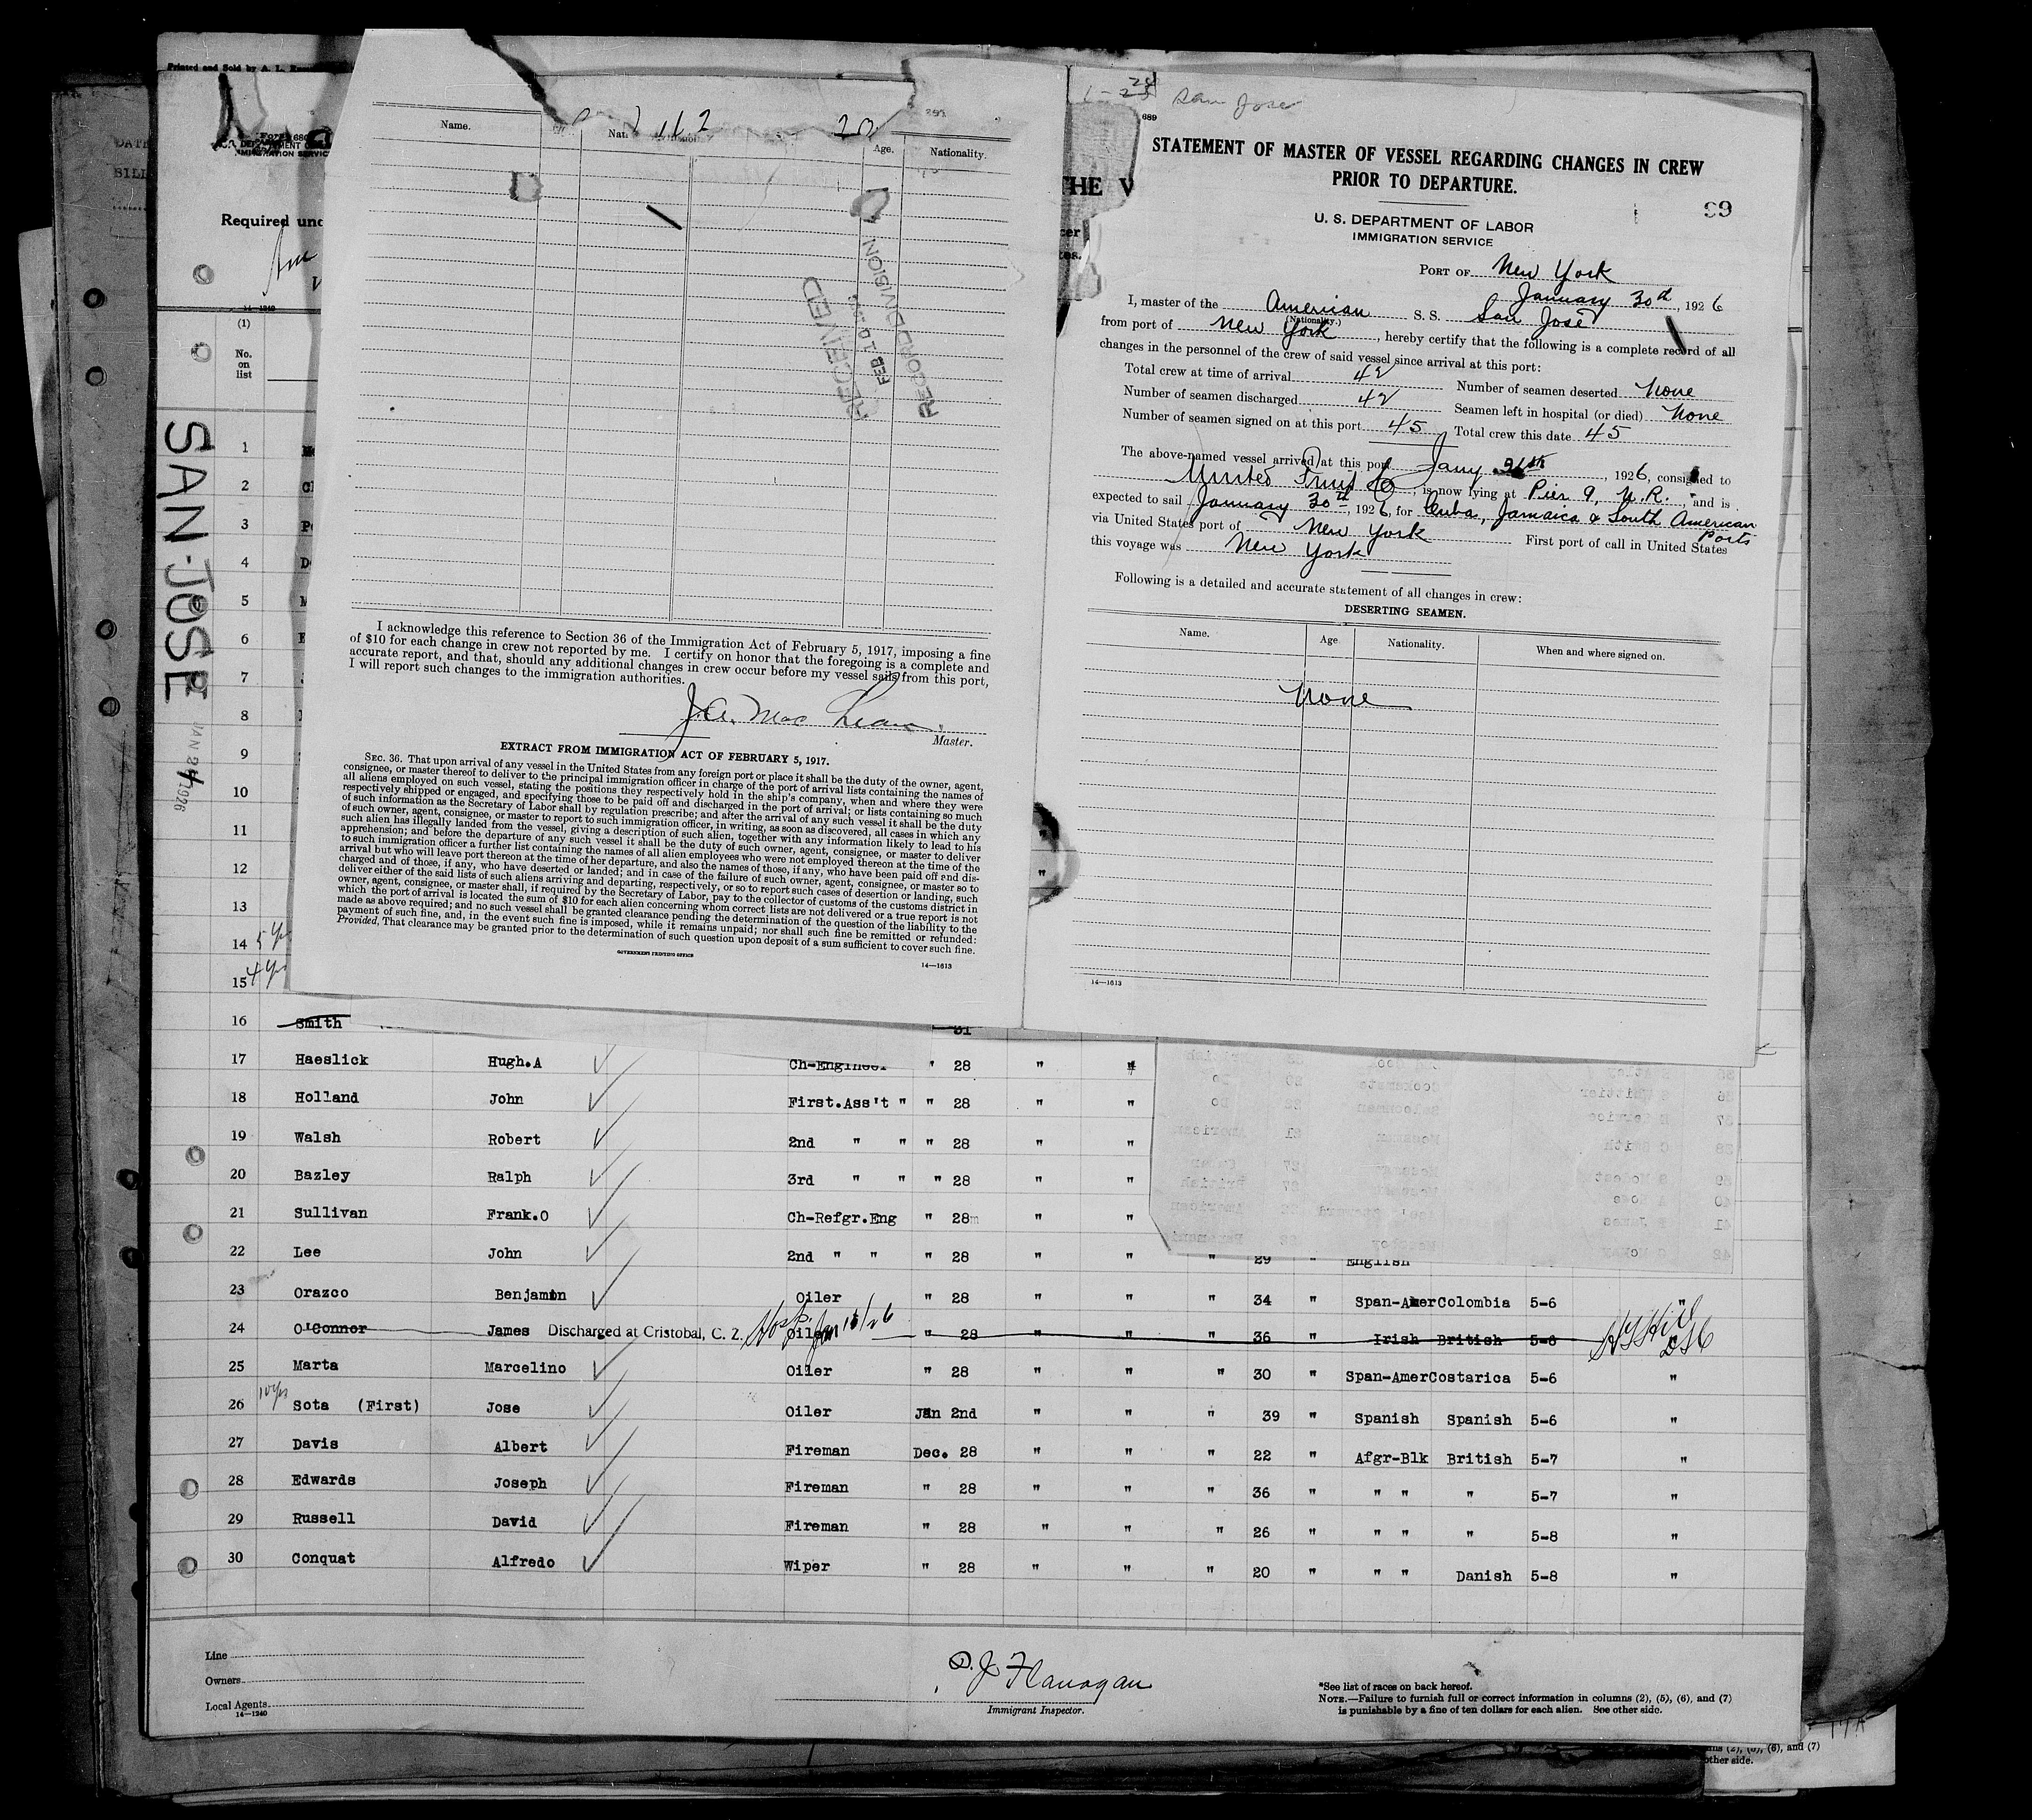 Printed and Sold by A. L.
Required und
14-1240
(1)
No.
on
list
SAN-JOSE
1926
Name.
Age.
Nationality.
RECEIVED
FEB 10
RECORD DIVISION
I acknowledge this reference to Section 36 of the Immigration Act of February 5, 1917, imposing a fine
of $10 for each change in crew not reported by me. I certify on honor that the foregoing is a complete and
accurate report, and that, should any additional changes in crew occur before my vessel sails from this port,
I will report such changes to the immigration authorities.
J.A. MacLean,
Master.
EXTRACT FROM IMMIGRATION ACT OF FEBRUARY 5, 1917.
SEC. 36. That upon arrival of any vessel in the United States from any foreign port or place it shall be the duty of the owner, agent,
consignee, or master thereof to deliver to the principal immigration officer in charge of the port of arrival lists containing the names of
all aliens employed on such vessel, stating the positions they respectively hold in the ship's company, when and where they were
respectively shipped or engaged, and specifying those to be paid off and discharged in the port of arrival; or lists containing so much
of such information as the Secretary of Labor shall by regulation prescribe; and after the arrival of any such vessel it shall be the duty
of such owner, agent, consignee, or master to report to such immigration officer, in writing, as soon as discovered, all cases in which any
such alien has illegally landed from the vessel, giving a description of such alien, together with any information likely to lead to his
apprehension; and before the departure of any such vessel it shall be the duty of such owner, agent, consignee, or master to deliver
to such immigration officer a further list containing the names of all alien employees who were not employed thereon at the time of the
arrival but who will leave port thereon at the time of her departure, and also the names of those, if any, who have been paid off and dis-
charged and of those, if any, who have deserted or landed; and in case of the failure of such owner, agent, consignee, or master so to
deliver either of the said lists of such aliens arriving and departing, respectively, or so to report such cases of desertion or landing, such
owner, agent, consignee, or master shall, if required by the Secretary of Labor, pay to the collector of customs of the customs district in
which the port of arrival is located the sum of $10 for each alien concerning whom correct lists are not delivered or a true report is not
made as above required; and no such vessel shall be granted clearance pending the determination of the question of the liability to the
payment of such fine, and, in the event such fine is imposed, while it remains unpaid; nor shall such fine be remitted or refunded:
Provided, That clearance may be granted prior to the determination of such question upon deposit of a sum sufficient to cover such fine.
GOVERNMENT PRINTING OFFICE
14—1613
San Jose
689
STATEMENT OF MASTER OF VESSEL REGARDING CHANGES IN CREW
PRIOR TO DEPARTURE.
THE V
U. S. DEPARTMENT OF LABOR
IMMIGRATION SERVICE
PORT OF New York
January 30th, 1926
I, master of the American S. S. San José
(Nationality.)
from port of New York, hereby certify that the following is a complete record of all
changes in the personnel of the crew of said vessel since arrival at this port:
Total crew at time of arrival 42 Number of seamen deserted None
Number of seamen discharged 42 Seamen left in hospital (or died) None
Number of seamen signed on at this port 45 Total crew this date 45
The above-named vessel arrived at this port Jany , 1926, consigned to
United Fruit Co, is now lying at Pier 9, N.R., and is
expected to sail January 30th, 1926, for Cuba, Jamaica & South American Ports
via United States port of New York First port of call in United States
this voyage was New York
Following is a detailed and accurate statement of all changes in crew:
DESERTING SEAMEN.
Name. Age Nationality. When and where signed on.
None
14—1613
1
2
3
4
5
6
7
8
9
10
11
12
13
14 5 yrs
15 4 yrs
16 Smith 31
17 Haeslick Hugh.A Ch-Engineer " 28 " "
18 Holland John First.Ass't " " 28 " "
19 Walsh Robert 2nd " " " 28 " "
20 Bazley Ralph 3rd " " " 28 " "
21 Sullivan Frank.O Ch-Refgr.Eng " 28 " "
22 Lee John 2nd " " " 28 " " " 29 " English
23 Orazco Benjamin Oiler " 28 " " " 34 " Span-Amer Colombia 5-6 "
24 O'Connor James Discharged at Cristobal, C. Z. Oiler " 28 " " 36 " Irish British 5-6
25 Marta Marcelino Oiler " 28 " " " 30 " Span-Amer Costarica 5-6 "
26 10 yrs Sota (First) Jose Oiler Jan 2nd " " " 39 " Spanish Spanish 5-6 "
27 Davis Albert Fireman Dec. 28 " " " 22 " Afgr-Blk British 5-7 "
28 Edwards Joseph Fireman " 28 " " " 36 " " " " 5-7 "
29 Russell David Fireman " 28 " " " 26 " " " " 5-8 "
30 Conquat Alfredo Wiper " 28 " " " 20 " " " Danish 5-8 "
Line
Owners
Local Agents
14—1240
D. J Flanagan
Immigrant Inspector.
*See list of races on back hereof.
NOTE.—Failure to furnish full or correct information in columns (2), (5), (6), and (7)
is punishable by a fine of ten dollars for each alien. See other side.
(2), (5), (6), and (7)
other side.